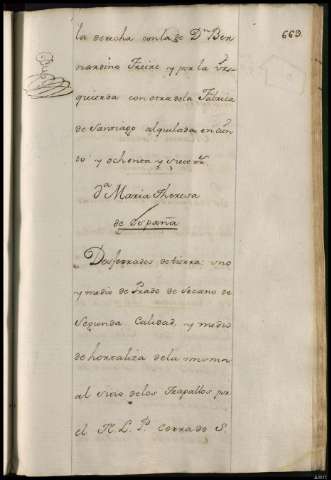 669
la derecha con la de Dn. Ber
nardino Freire y por la Yz-
quierda con otra de la Fabrica
de Santiago alquilada en cien
to y ochenta y siete rs.
Da. Maria Theresa
de España
Dosferrados de tierra: uno
y medio de Prado de Secano de
Segunda Calidad, y medio
de hortaliza de la misma
al sitio de los Trapallos por
el N. L. P. Cerra do S.